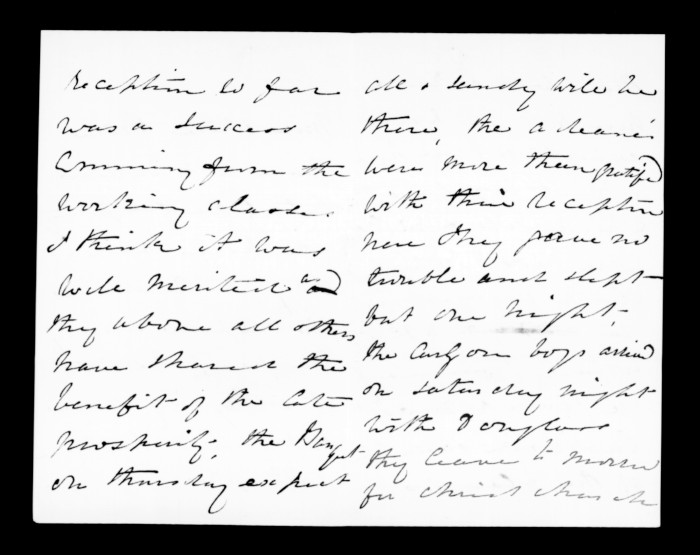 reception so far
was a success
Comming from the
working classes
I think it was
well merited as
they above all others
have shared the
benefit of the late
prosperity, the Banquet
on thursday expect
all & sundry will be
there, the
were more than gratified
with their reception
here they gave no
trouble and slept
but one night,
the boys arrived
on saturday night
with Douglass
they leave to morrow
for christchurch